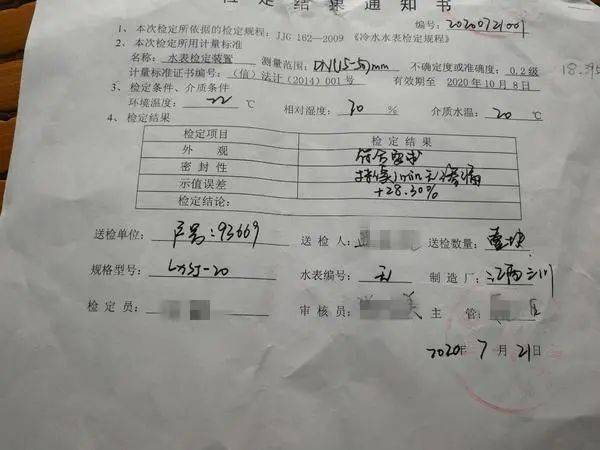 检定结果通知书
编号:20200721001
1、本次检定所依据的检定规程:JJG 162—2009 《冷水水表检定规程》
2、本次检定所用计量标准
名称:水表检定装置 测量范围:DN(15-50)mm 不确定度或准确度:0.2级
计量标准证书编号:(信)法计(2014)001号 有效期至 2020年10月8日
3、检定条件、介质条件
环境温度: 22 ℃ 相对湿度: 70 % 介质水温: 20 ℃
4、检定结果
检定项目 检定结果
外观 符合要求
密封性 持续1min无渗漏
示值误差 +28.30%
检定结论:
送检单位:户号:93669 送检人: 送检数量:壹块
规格型号:LXSJ-20 水表编号:无 制造厂:江西三川
检定员: 审核员: 美 主管:
2020年7月21日